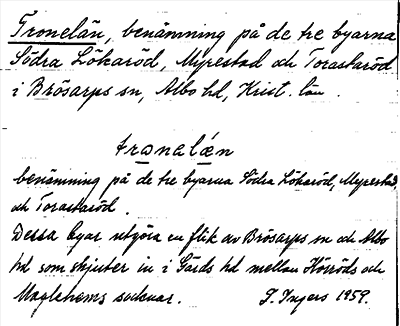 Tronelän, benämning på de tre byarna
Södra Lökaröd, Myrestad och Torastaröd
i Brösarps sn, Albo hd, Krist. län.
trɔnelǽn
benämning på de tre byarna Södra Lökaröd, Myrestad,
och Torastaröd.
Dessa byar utgöra en flik av Brösarps sn och Albo
hd som skjuter in i Gärds hd mellan Hörröds och
Maglehems socknar. I. Ingers 1959.